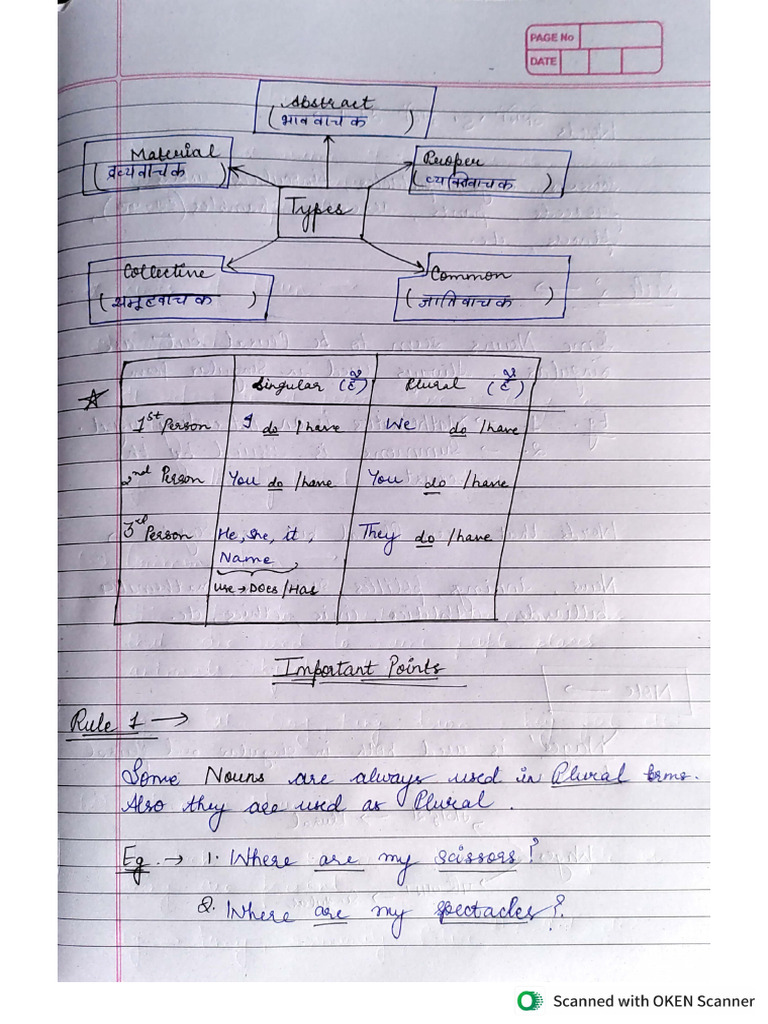 PAGE No
DATE
Abstract
(भाववाचक)
Material
(द्रव्यवाचक)
Proper
(व्यक्तिवाचक)
Types
Collective
(समूहवाचक)
Common
(जातिवाचक)
Singular (है) Plural (हैं)
1st Person I do /have We do /have
2nd Person You do /have You do /have
3rd Person He, she, it, They do /have
Name
use → Does/Has
Important Points
Rule 1 →
Some Nouns are always used in Plural forms.
Also they are used as Plural.
Eg. → 1. Where are my scissors?
2. Where are my spectacles?
Scanned with OKEN Scanner